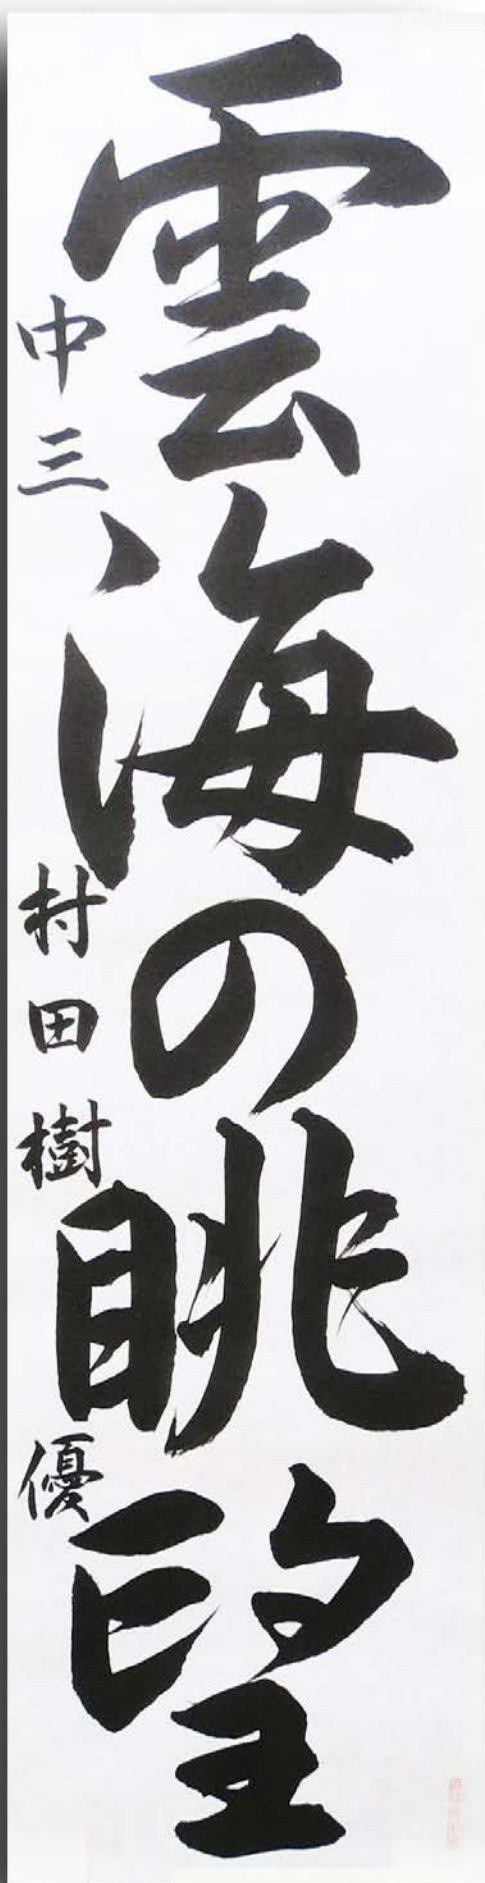 雲海の眺望
中三 村田樹優